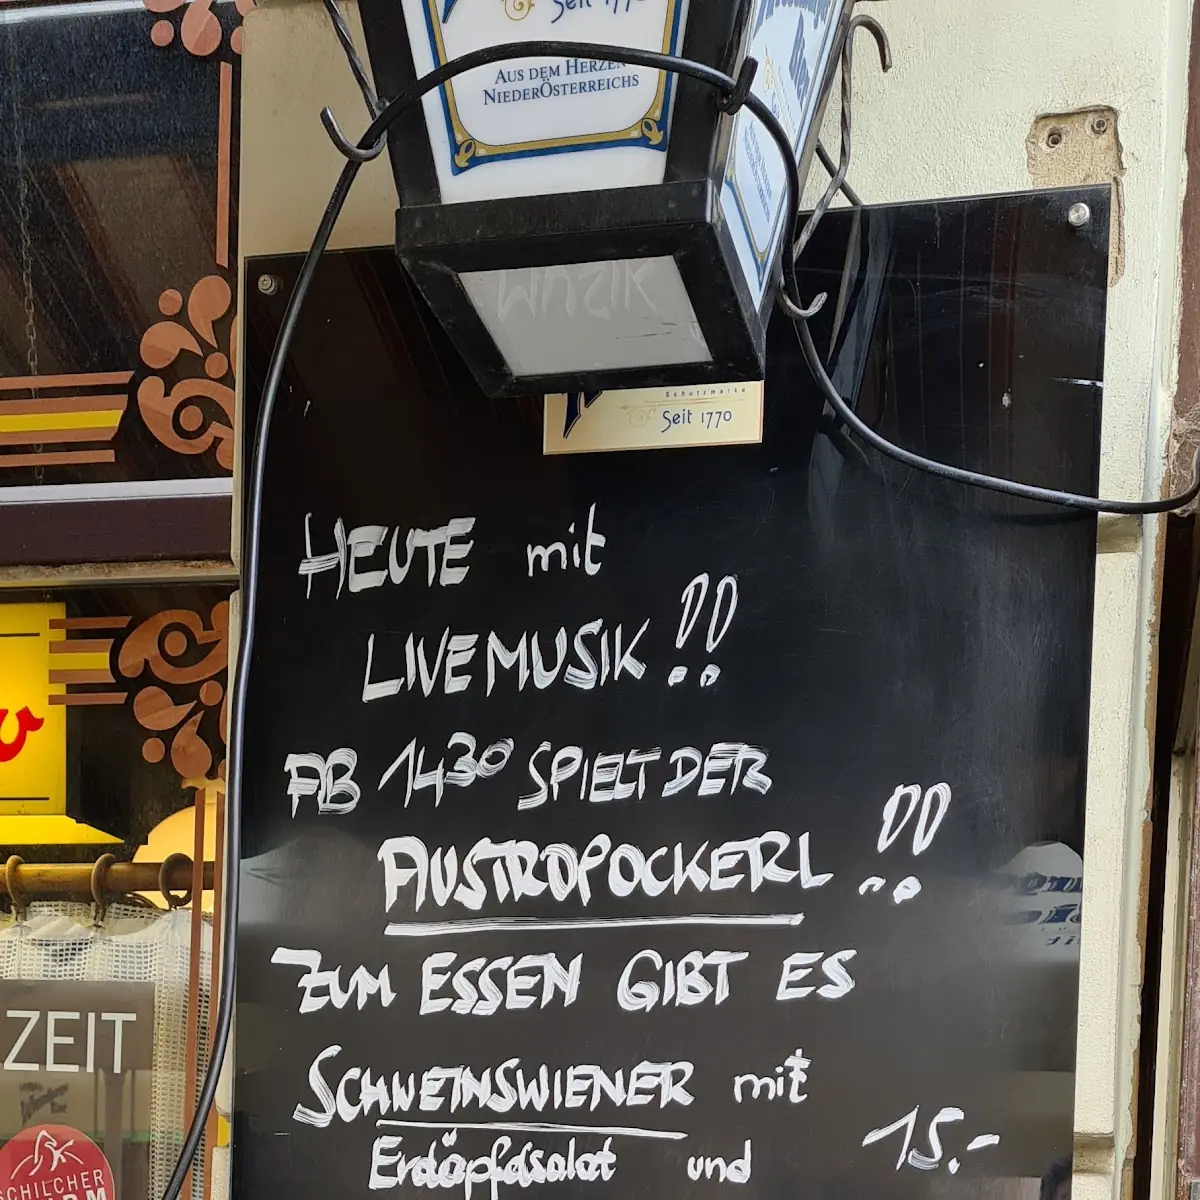 Seit 1770
AUS DEM HERZEN
NIEDERÖSTERREICHS
Schutzmarke
Seit 1770
HEUTE mit
LIVEMUSIK !!
AB 14³⁰ SPIELT DER
AUSTROPOCKERL !!
ZUM ESSEN GIBT ES
SCHWEINSWIENER mit
Erdäpfelsalat und 15.-
ZEIT
SCHILCHER